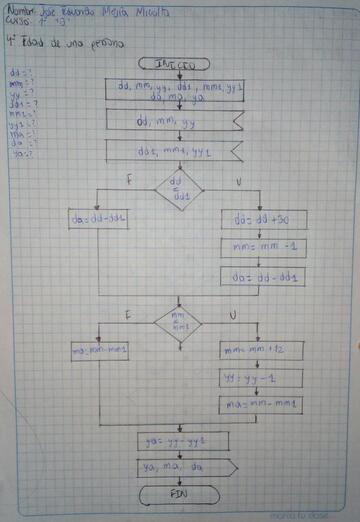 Nombre: José Eduardo Mejía Micolta
Curso: 1° "B"
4° Edad de una persona
dd=?
mm=?
yy=?
dd1=?
mm1=?
yy1=?
ma=?
da=?
ya=?
INICIO
dd, mm, yy, dd1, mm1, yy1
da, ma, ya
dd, mm, yy
dd1, mm1, yy1
F
V
dd
<
dd1
da=dd-dd1
dd= dd +30
mm= mm -1
da= dd - dd1
F
V
mm
<
mm1
ma=mm-mm1
mm= mm +12
yy= yy -1
ma= mm- mm1
ya= yy-yy1
ya, ma, da
FIN